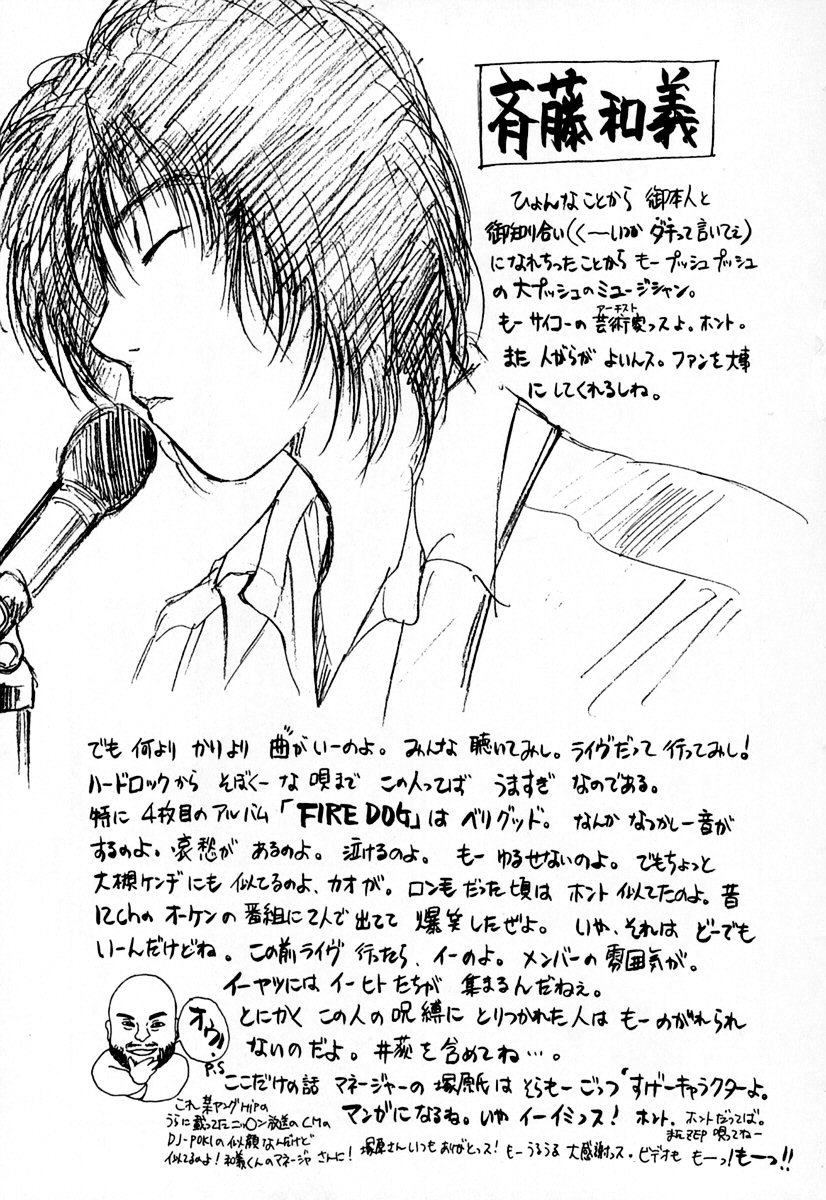 斉藤和義
ひょんなことから 御本人と
御知り合い(くーいつか ダチって言いてぇ)
になれちったことから もー プッシュプッシュ
の 大プッシュのミュージシャン。
もー サイコーの 芸術家ッスよ。ホント。
アーチスト
また 人がらが よいんス。ファンを大事
にしてくれるしね。
でも 何より かにより 曲がいーのよ。みんな 聴いてみし。ライヴだって 行ってみし!
ハードロックから そぼくーな 唄まで この人ってば うますぎ なのである。
特に 4枚目のアルバム「FIRE DOG」は ベリグッド。なんか なつかしー音が
するのよ。哀愁が あるのよ。泣けるのよ。もー ゆるせないのよ。でもちょっと
大槻ケンヂにも 似てるのよ、カオが。ロン毛だった頃は ホント 似てたのよ。昔
12chの オーケンの 番組に2人で 出てて 爆笑したぜよ。いや、それは どーでも
いーんだけどね。この前 ライヴ 行ったら、イーのよ。メンバーの 雰囲気が。
イーヤツには イーヒトたちが 集まるんだねぇ。
とにかく この人の 呪縛に とりつかれた人は もー のがれられ
ないのだよ。井荻を 含めてね…。
オウ!
P.S
ここだけの話 マネージャーの 塚原氏は そらもー ごっつ すげーキャラクターよ。
マンガになるね。いや イーイミっス! ホント。ホントだってば。
またZEP 唄ってねー
これ 某ヤングHipの
うらに 載ってたニッ○ン放送のCMの
DJ-POKIの似顔なんだけど
似てるのよ!和義くんのマネージャ さんに!
塚原さんいつもありがとっス! もー うるうる 大感謝っス。ビデオも もーっ!もーっ!!